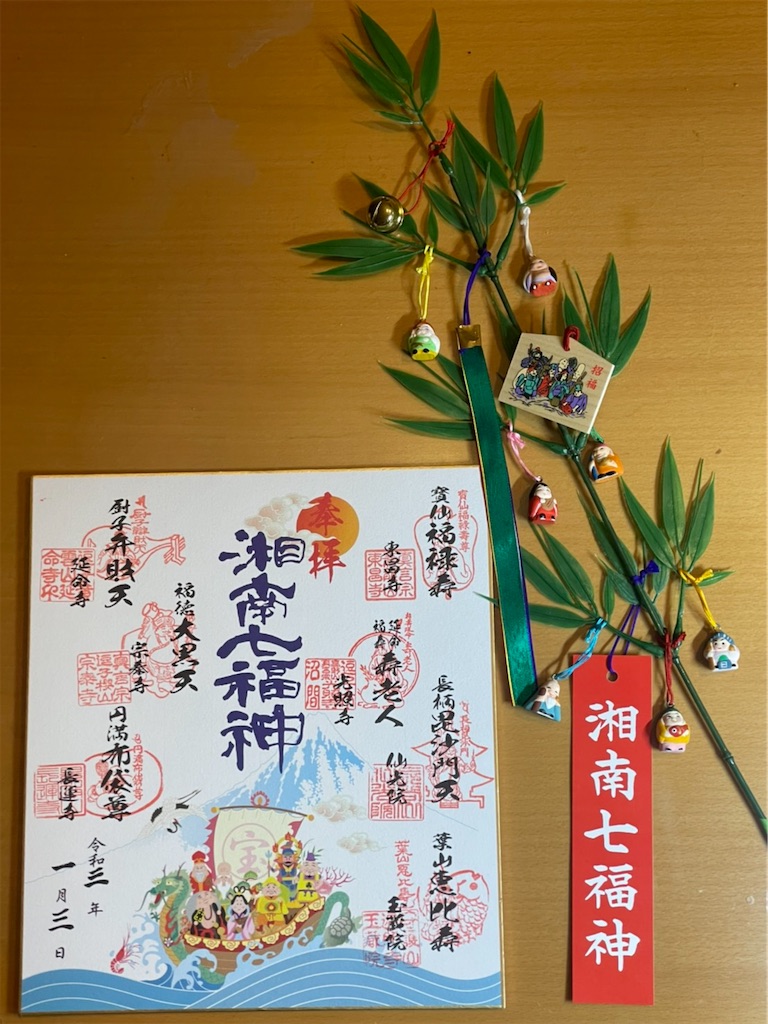 奉拝
湘南七福神
宝仙福禄寿
東昌寺
延命
福寿
寿老人
光照寺
長柄毘沙門天
仙光院
葉山恵比寿
玉蔵院
厨子弁財天
延命寺
福徳大黒天
宗泰寺
円満布袋尊
長運寺
令和三年
一月三日
宝
招福
湘南七福神